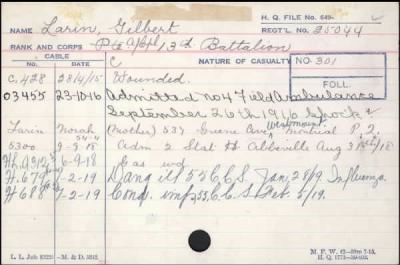 H. Q. FILE No. 649-
NAME Larin, Gilbert REGT'L. No. 25044
RANK AND CORPS Pte A/Cpl 13th Battalion
CABLE
No. DATE C NATURE OF CASUALTY NO. 301
FOLL.
C.428 28/4/15 Wounded.
03455 23-10-16 Admitted No 4 Field Ambulance
September 26th 1916 Shock
Larin Norah (mother) 537 Greene Ave Westmount Montreal P.Q.
5300 9-9-18 Adm 2 Stat Abbeville Aug 3 /18
6-9-18 Cas wd
1-2-19 Dang ill 55 C.C.S. Jan. 28/19 Influenza.
H.688 1-2-19 Cond. imp. 55 C.C.S. Feb. 5/19.
L. L. Job —M. & D.
M. F. W. 42
H. Q. 1772-39-893.